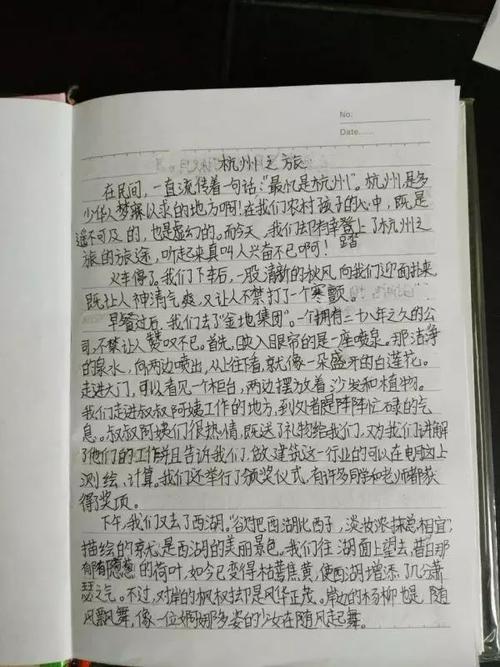 No:
Date......
杭州之旅
在民间，一直流传着一句话：“最忆是杭州”。杭州，是多
少华人梦寐以求的地方啊！在我们农村孩子的心中，既是
遥不可及的，也是虚幻的。而今天，我们却有幸登上了杭州之
踏
旅的旅途，听起来真叫人兴奋不已啊！
火车停了。我们下车后，一股清新的秋风向我们迎面扑来
既让人神清气爽，又让人不禁打了一个寒颤。
早餐过后，我们去了“金地集团”。一个拥有二十八年之久的公
司，不禁让人赞叹不已。首先，映入眼帘的是一座喷泉。那洁净
的泉水，向两边喷出，从上往下看，就像一朵盛开的白莲花。
走进大门，可以看见一个柜台，两边摆放着沙发和植物。
我们走进叔叔阿姨工作的地方，到处都是阵阵忙碌的气
息。叔叔阿姨们很热情，既送了礼物给我们，又为我们讲解
了他们的工作，并且告诉我们，做建筑这一行业的可以在电脑上
测绘、计算。我们还举行了颁奖仪式，有许多同学和老师都获
得了奖项。
下午，我们又去了西湖。“欲把西湖比西子，淡妆浓抹总相宜”
描绘的就是西湖的美丽景色。我们往湖面上望去，昔日那
郁郁葱葱的荷叶，如今已变得枯萎焦黄，使西湖增添了几分萧
瑟之气。不过，对岸的枫树却是风华正茂。岸边的杨柳也是，随
风飘舞，像一位婀娜多姿的少女在随风起舞。